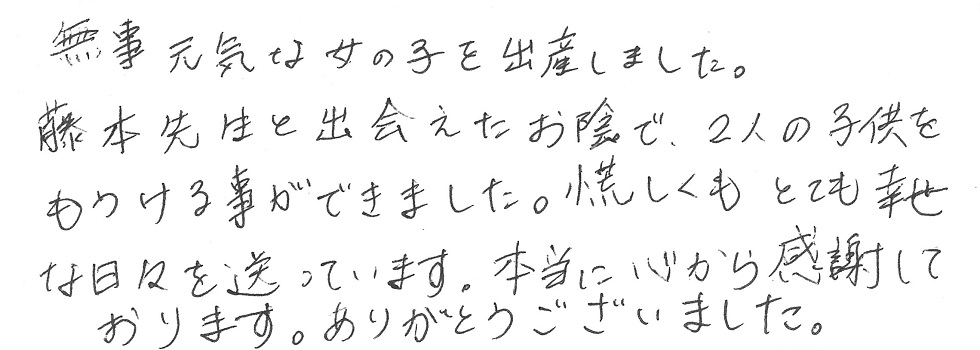 無事元気な女の子を出産しました。
藤本先生と出会えたお陰で、2人の子供を
もうける事ができました。慌しくもとても幸せ
な日々を送っています。本当に心から感謝して
おります。ありがとうございました。